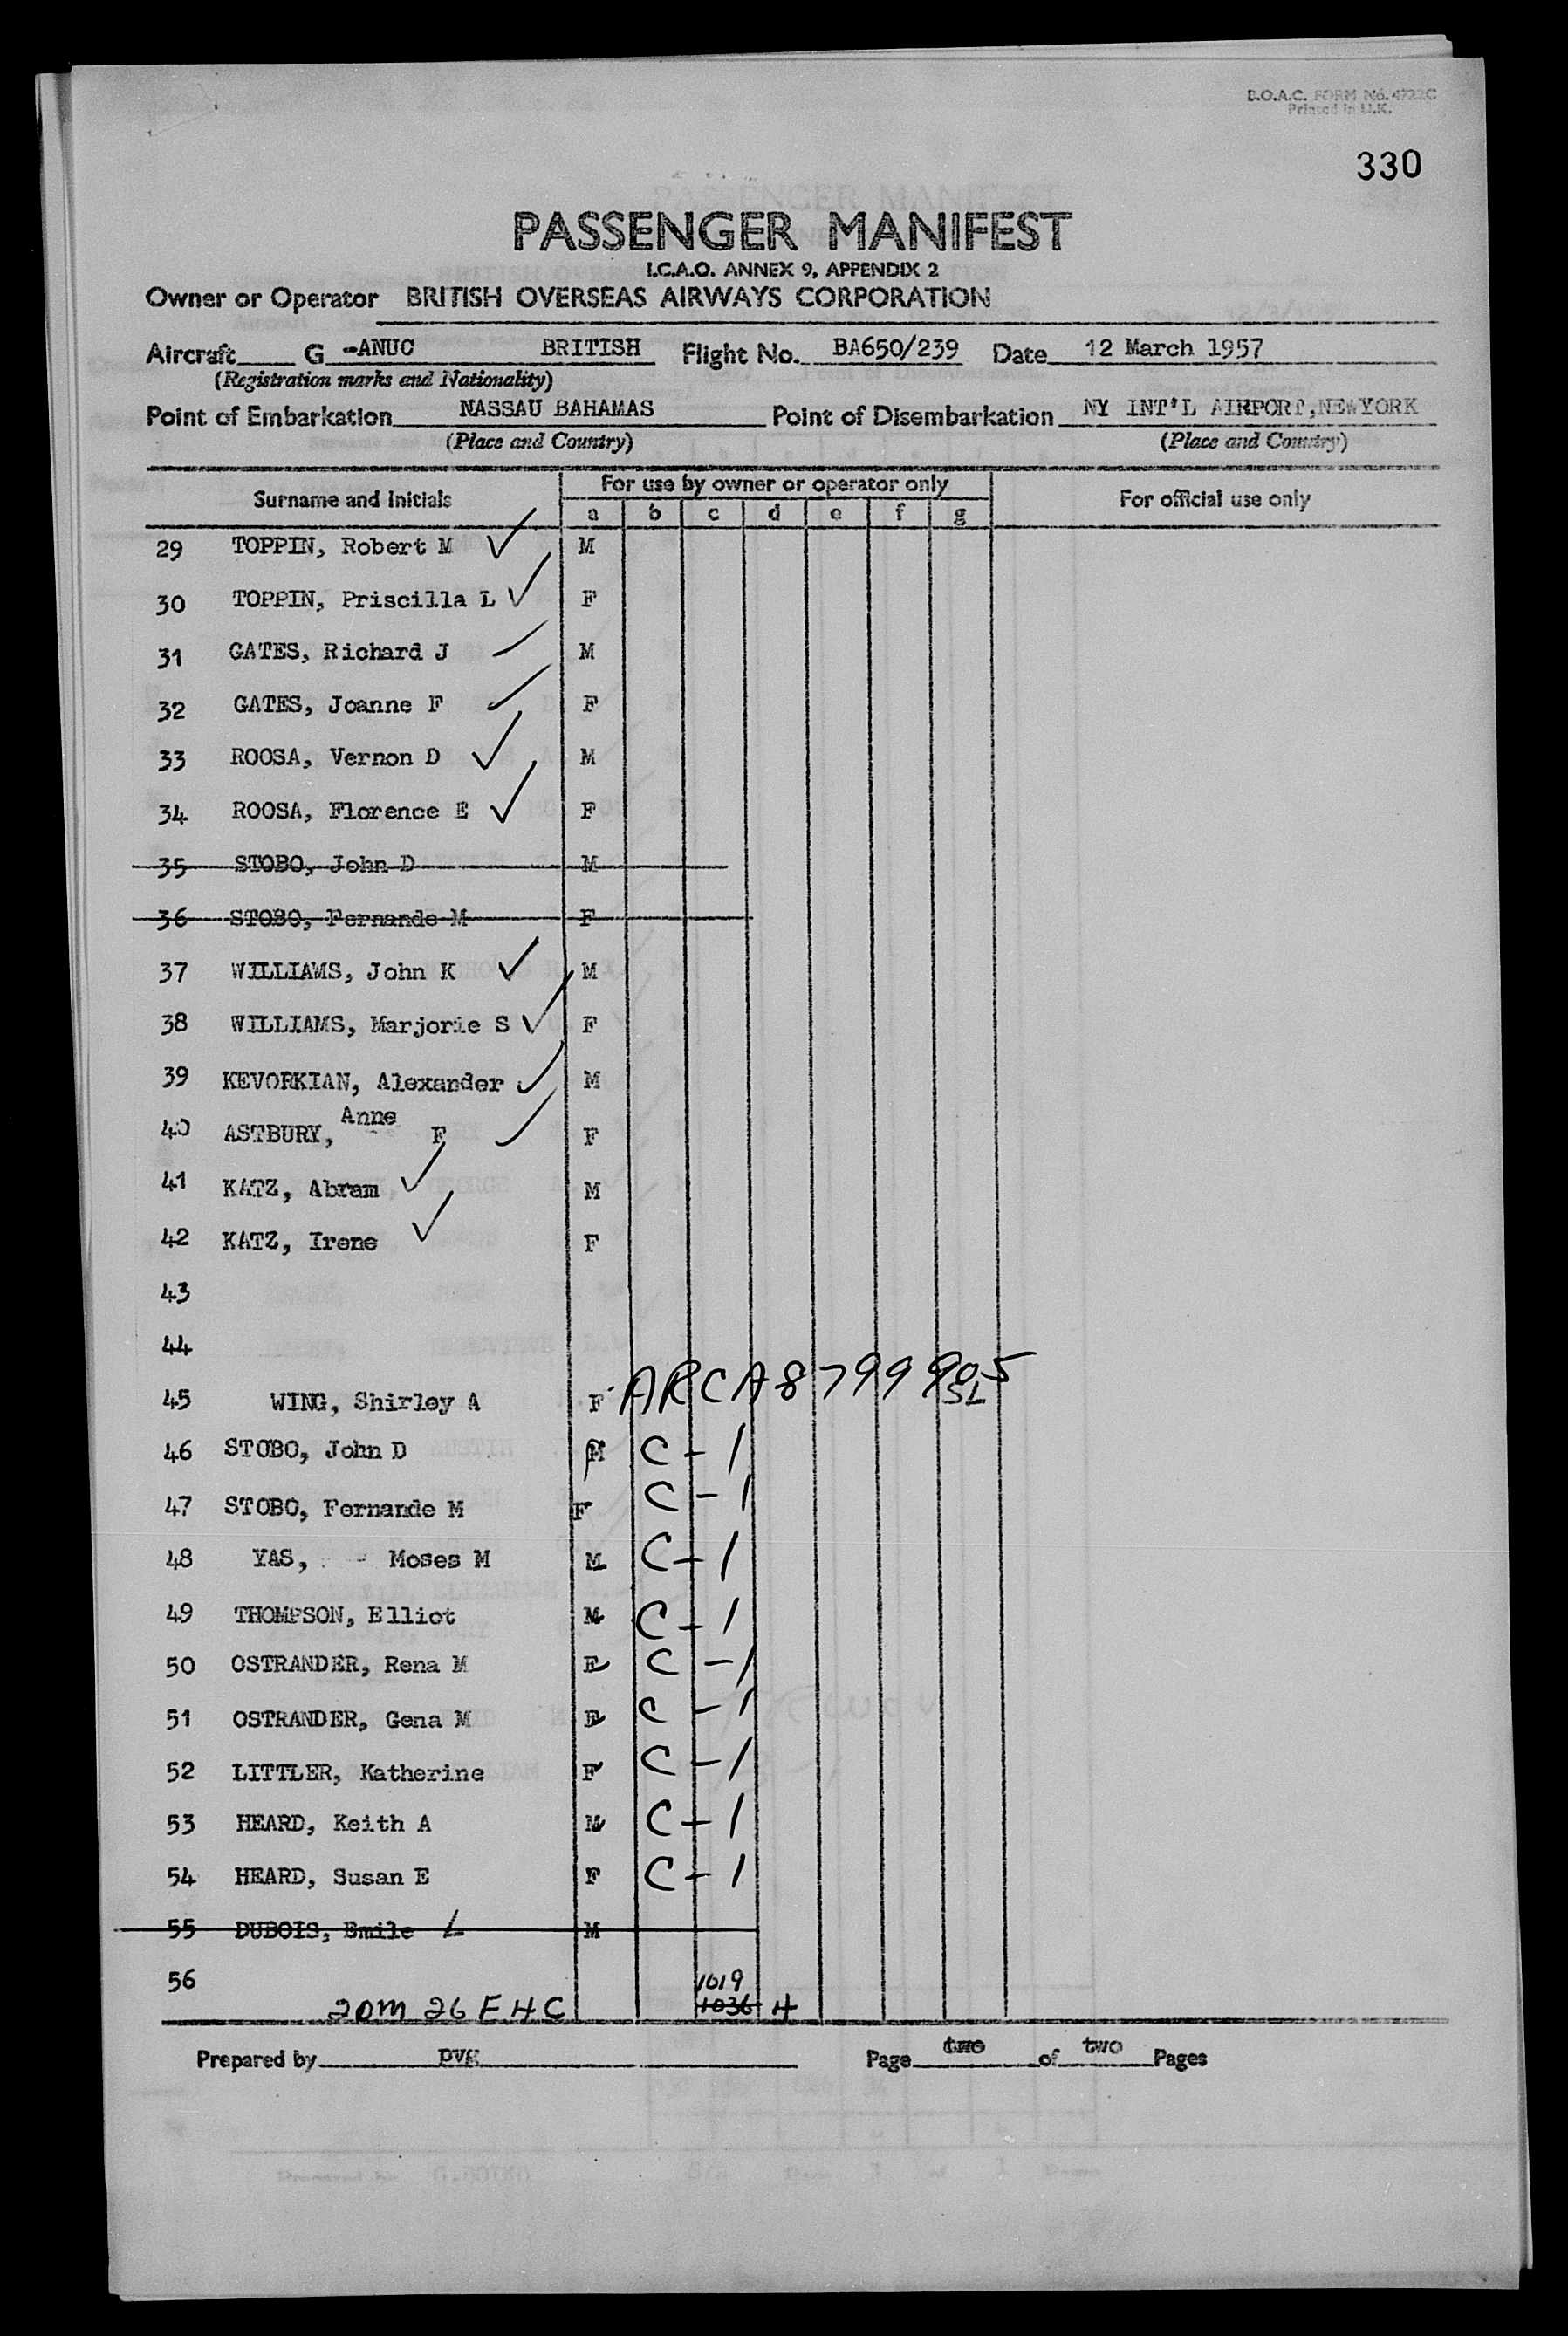 B.O.A.C. FORM No. 4722C
Printed in U.K.
330
PASSENGER MANIFEST
I.C.A.O. ANNEX 9, APPENDIX 2
Owner or Operator BRITISH OVERSEAS AIRWAYS CORPORATION
Aircraft G -ANUC BRITISH Flight No. BA650/239 Date 12 March 1957
(Registration marks and Nationality)
Point of Embarkation NASSAU BAHAMAS Point of Disembarkation NY INT'L AIRPORT, NEWYORK
(Place and Country) (Place and Country)
Surname and Initials For use by owner or operator only For official use only
a b c d e f g
29 TOPPIN, Robert M M
30 TOPPIN, Priscilla L F
31 GATES, Richard J M
32 GATES, Joanne F F
33 ROOSA, Vernon D M
34 ROOSA, Florence E F
35 STOBO, John D M
36 STOBO, Fernande M F
37 WILLIAMS, John K M
38 WILLIAMS, Marjorie S F
39 KEVORKIAN, Alexander M
40 ASTBURY, Anne F F
41 KATZ, Abram M
42 KATZ, Irene F
43
44
45 WING, Shirley A F ARCA8799905
SL
46 STOBO, John D M C-1
47 STOBO, Fernande M F C-1
48 YAS, - Moses M M C-1
49 THOMPSON, Elliot M C-1
50 OSTRANDER, Rena M F C-1
51 OSTRANDER, Gena M F C-1
52 LITTLER, Katherine F C-1
53 HEARD, Keith A M C-1
54 HEARD, Susan E F C-1
55 DUBOIS, Emile L M
56 1019
20M 26F HC 1036 H
Prepared by pvg Page two of two Pages